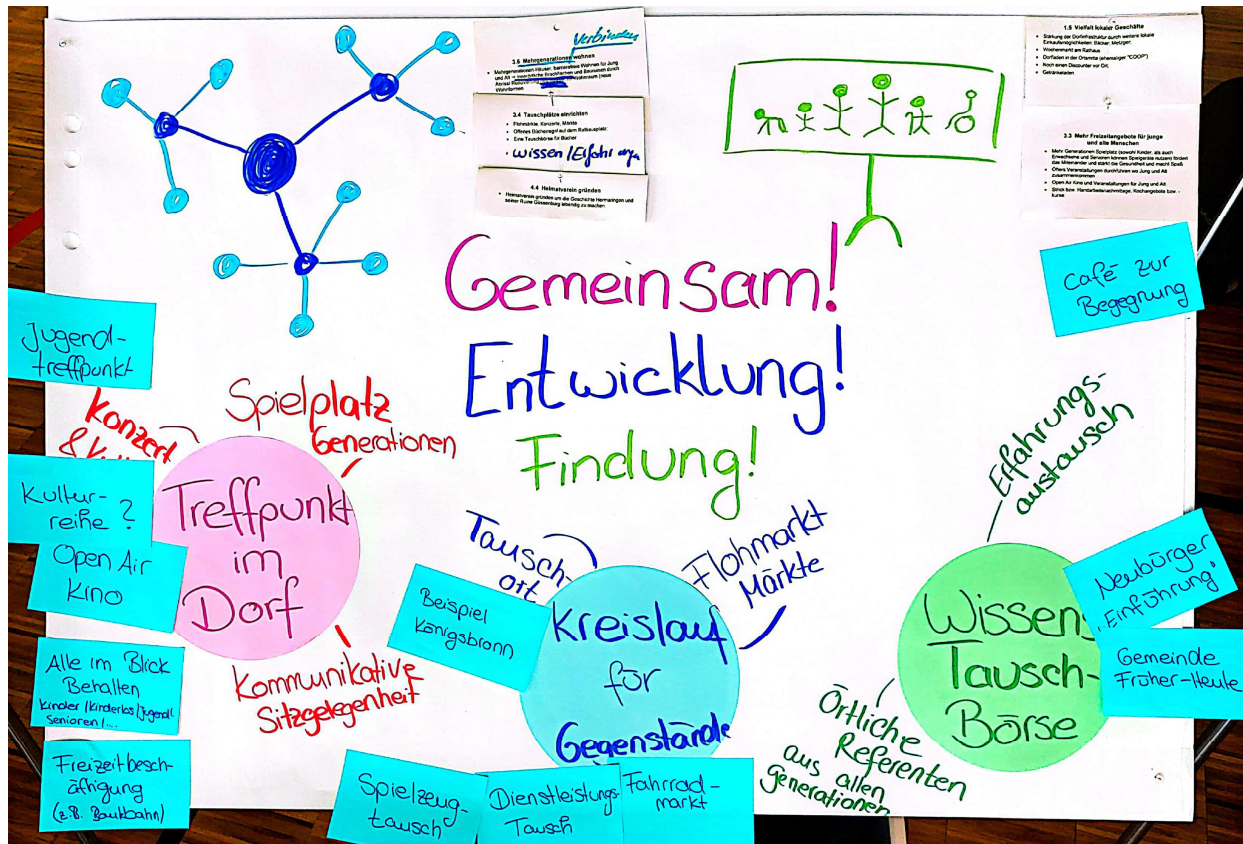 verbinden
3.6 Mehrgenerationen wohnen
Mehrgenerationen-Häuser, barrierefreie Wohnen für Jung
3.4 Tauschplätze einrichten
Flohmärkte, Konzerte, Märkte
Offenes Bücherregal auf dem Rathausplatz
Eine Tauschbörse für Bücher
Wissen / Erfahr
4.4 Heimatverein gründen
Heimatverein gründen um die Geschichte Hermaringen und
seiner Ruine Güssenburg lebendig zu machen
1.5 Vielfalt lokaler Geschäfte
Stärkung der Dorfinfrastruktur durch weitere lokale
Einkaufsmöglichkeiten: Bäcker, Metzger,
Wochenmarkt am Rathaus
Dorfladen in der Ortsmitte (ehemaliger "COOP")
Noch einen Discounter vor Ort,
Getränkeladen
3.3 Mehr Freizeitangebote für junge
und alte Menschen
Mehr Generationen Spielplatz (sowohl Kinder, als auch
Erwachsene und Senioren können Spielgeräte nutzen) fördert
das Miteinander und stärkt die Gesundheit und macht Spaß
Öfters Veranstaltungen durchführen wo Jung und Alt
zusammenkommen
Open Air Kino und Veranstaltungen für Jung und Alt
Strick bzw. Handarbeitsnachmittage, Kochangebote bzw. -
kurse
Gemeinsam!
Entwicklung!
Findung!
Café zur
Begegnung
Jugend-
treffpunkt
Konzert
&
Spielplatz
Generationen
Treffpunkt
im
Dorf
Kultur-
reihe?
Open Air
Kino
Alle im Blick
Behalten
Kinder/Kinderlos/Jugendl.
Senioren/...
Freizeitbesch-
äftigung
(z.B. Baukbahn)
Kommunikative
Sitzgelegenheit
Tausch-
ort
Flohmarkt
Märkte
Beispiel
Königsbronn
Kreislauf
für
Gegenstände
Spielzeug-
tausch
Dienstleistungs-
Tausch
Fahrrad-
markt
Erfahrungs-
austausch
Wissens
Tausch-
Börse
Neubürger
'Einführung'
Gemeinde
Früher-Heute
Örtliche
Referenten
aus allen
Generationen